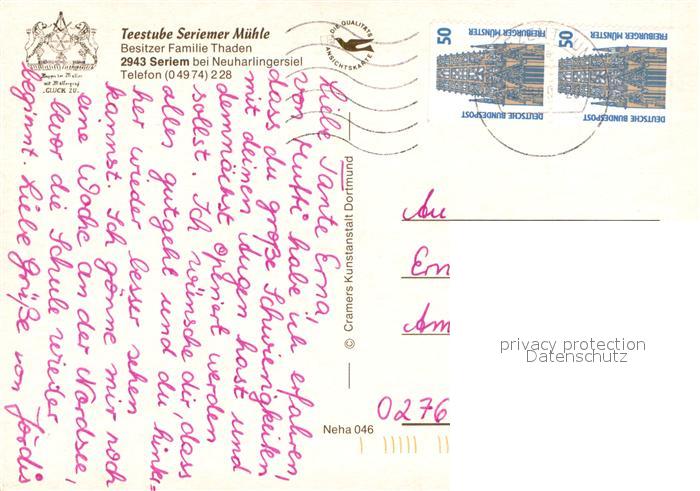 Teestube Seriemer Mühle
Besitzer Familie Thaden
2943 Seriem bei Neuharlingersiel
Telefon (0 49 74) 2 28
Wappen der Müller
mit Müllergruß
„GLÜCK ZU“
DIE QUALITÄTS
ANSICHTSKARTE
50
FREIBURGER MÜNSTER
DEUTSCHE BUNDESPOST
50
FREIBURGER MÜNSTER
DEUTSCHE BUNDESPOST
Liebe Tante Erna!
von Mutti habe ich erfahren,
dass du große Schwierigkeiten
mit deinen Augen hast und
demnächst operiert werden
sollst. Ich wünsche dir, dass
alles gutgeht und du hinter=
her wieder besser sehen
kannst. Ich gönne mir noch
eine Woche an der Nordsee,
bevor die Schule wieder
beginnt. Liebe Grüße von Jördis
© Cramers Kunstanstalt Dortmund
Neha 046
An
Ern
Am
0276
privacy protection
Datenschutz